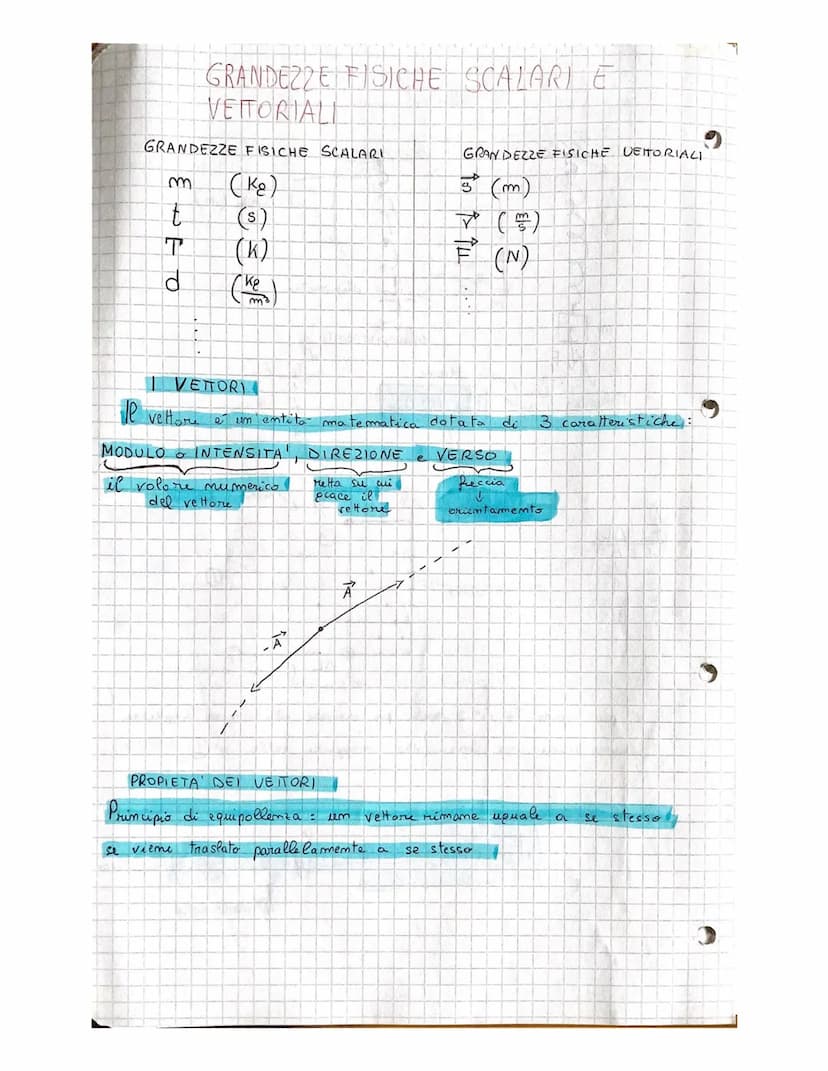 GRANDEZZE FISICHE SCALARI E
VETTORIALI
GRANDEZZE FISICHE SCALARI
m (Kg)
t (s)
T (K)
d (Kg/m³)
⋮
GRANDEZZE FISICHE VETTORIALI
s⃗ (m)
v⃗ (m/s)
F⃗ (N)
⋮
I VETTORI
Il vettore è un'entità matematica dotata di 3 caratteristiche:
MODULO o INTENSITA', DIREZIONE e VERSO
il valore numerico
del vettore
retta su cui
giace il
vettore
freccia
↓
orientamento
A⃗
-A⃗
PROPIETA' DEI VETTORI
Principio di equipollenza: un vettore rimane uguale a se stesso
se viene traslato parallelamente a se stesso